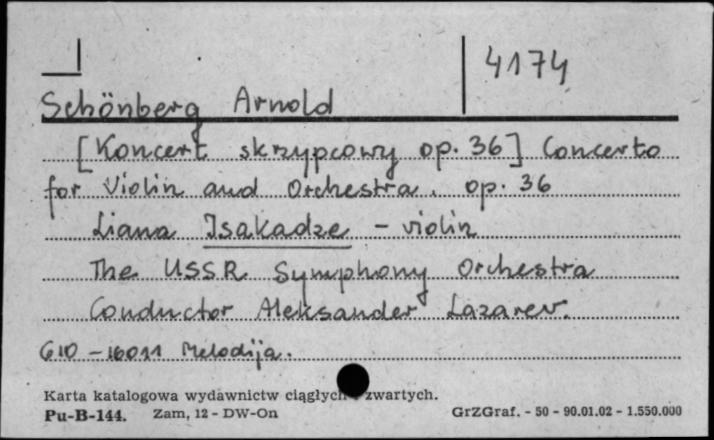 4174
Schönberg Arnold
[Koncert skrzypcowy op. 36] Concerto
for Violin and Orchestra. op. 36
Liana Isakadze - violin
The USSR Symphony Orchestra
Conductor Aleksander Lazarev.
G10 - 16011 Melodija.
Karta katalogowa wydawnictw ciągłych zwartych.
Pu-B-144. Zam, 12 - DW-On GrZGraf. - 50 - 90.01.02 - 1.550.000